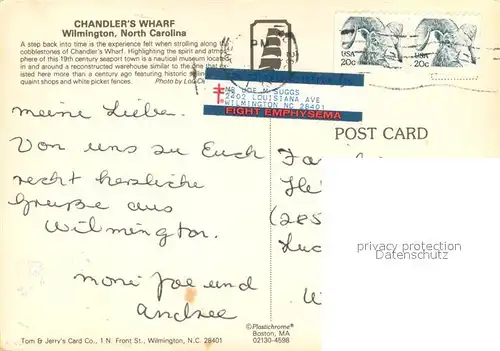 CHANDLER'S WHARF
Wilmington, North Carolina
A step back into time is the experience felt when strolling along the
cobblestones of Chandler's Wharf. Highlighting the spirit and atmos-
phere of this 19th century seaport town is a nautical museum
in and around a reconstructed warehouse similar to the one that
isted here more than a century ago featuring historic
quaint shops and white picket fences. Photo by
PM
USA
20c
USA
20c
MR JOE M SUGGS
2402 LOUISIANA AVE
WILMINGTON NC 28401
FIGHT EMPHYSEMA
POST CARD
meine Lieben.
Von uns zu Euch
recht herzliche
Grüße aus
Wilmington.
Joe und
Andree
privacy protection
Datenschutz
Tom & Jerry's Card Co., 1 N. Front St., Wilmington, N.C. 28401
©Plastichrome®
Boston, MA
02130-4598